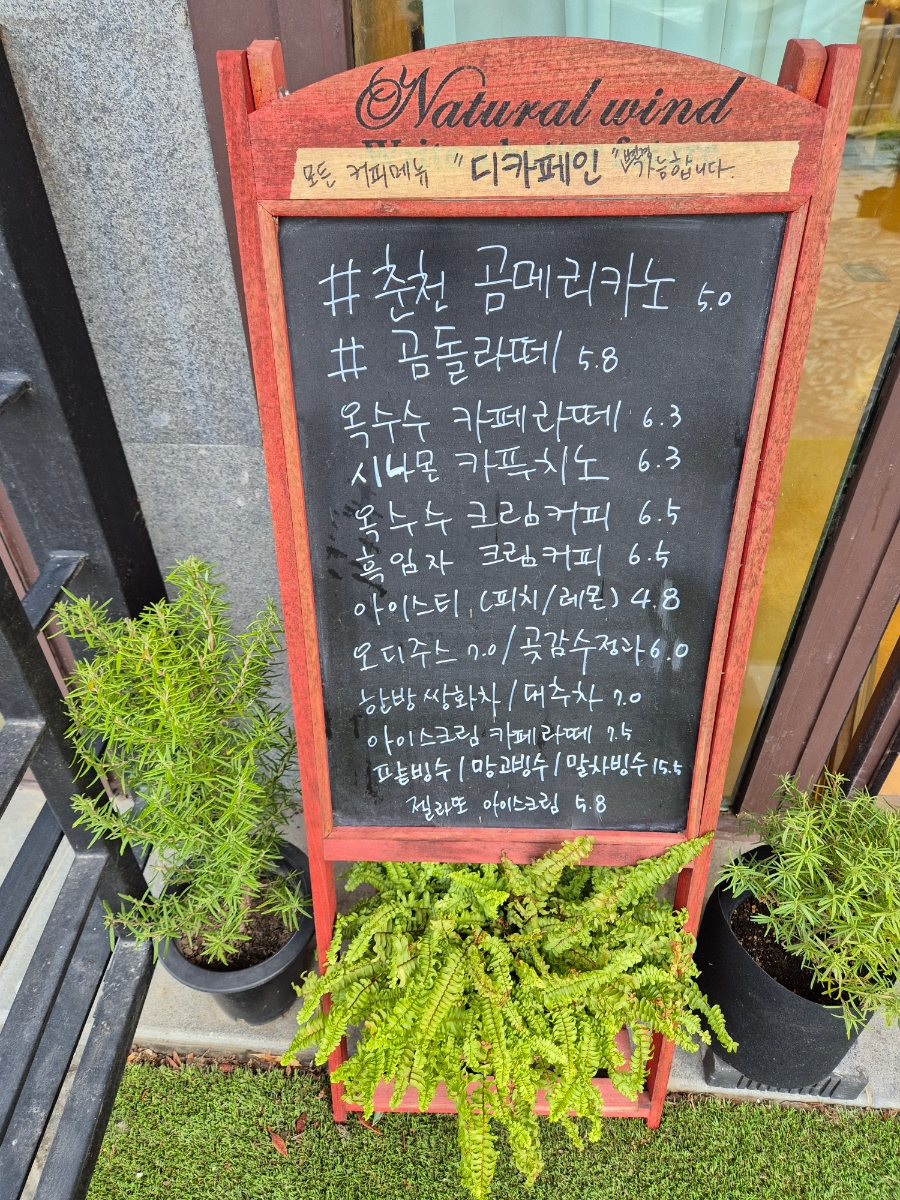 Natural wind
모든 커피메뉴 "디카페인" 변경가능합니다.
# 춘천 곰메리카노 5.0
# 곰돌라떼 5.8
옥수수 카페라떼 6.3
시나몬 카푸치노 6.3
옥수수 크림커피 6.5
흑임자 크림커피 6.5
아이스티 (피치/레몬) 4.8
오디주스 7.0/곶감수정과 6.0
한방쌍화차/대추차 7.0
아이스크림 카페라떼 7.5
팥빙수/망고빙수/말차빙수 15.5
젤라또 아이스크림 5.8